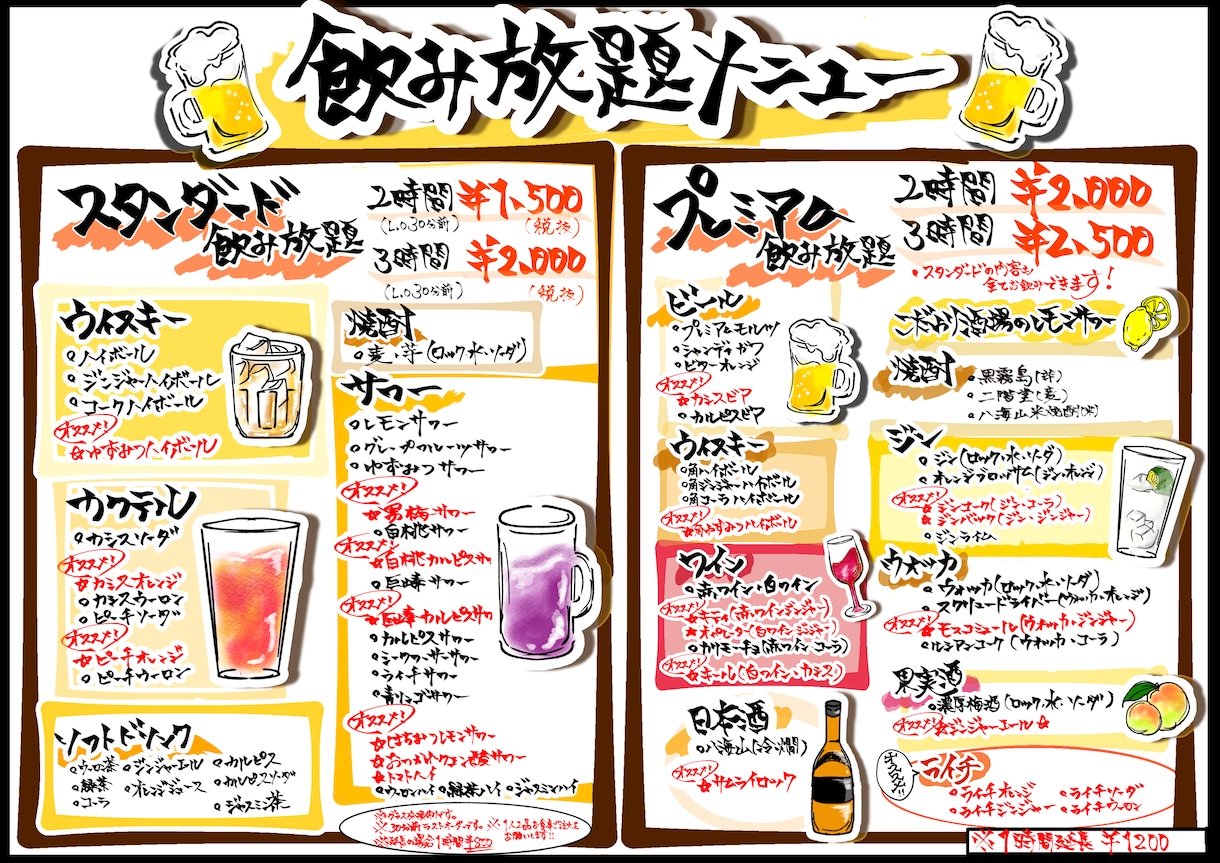 飲み放題メニュー
スタンダード
飲み放題
2時間 ¥1,500
(L.O30分前) (税抜)
3時間 ¥2,000
(L.O30分前) (税抜)
ウイスキー
・ハイボール
・ジンジャーハイボール
・コークハイボール
オススメ!
☆ゆずみつハイボール
カクテル
・カシスソーダ
オススメ!
☆カシスオレンジ
・カシスウーロン
・ピーチソーダ
オススメ!
☆ピーチオレンジ
・ピーチウーロン
ソフトドリンク
・ウーロン茶 ・ジンジャーエール ・カルピス
・緑茶 ・オレンジジュース ・カルピスソーダ
・コーラ ・ジャスミン茶
焼酎
・麦・芋(ロック・水・ソーダ)
サワー
・レモンサワー
・グレープフルーツサワー
・ゆずみつサワー
オススメ!
☆男梅サワー
・白桃サワー
オススメ!
☆白桃カルピスサワー
・巨峰サワー
オススメ!
☆巨峰カルピスサワー
・カルピスサワー
・シークワーサーサワー
・ライチサワー
・青りんごサワー
オススメ!
☆はちみつレモンサワー
☆おつかれクエン酸サワー
☆トマトハイ
・ウーロンハイ ・緑茶ハイ ・ジャスミンハイ
※グラス交換制です。
※30分前ラストオーダーです。 ※1人2品お食事ご注文を
お願いします!!
※延長の場合1時間¥800
プレミアム
飲み放題
2時間 ¥2,000
3時間 ¥2,500
・スタンダードの内容も
全てお飲みできます!
ビール
・プレミアムモルツ
・シャンディガフ
・ビターオレンジ
オススメ!
☆カシスビア
・カルピスビア
ウイスキー
・角ハイボール
・角ジンジャーハイボール
・角コーラハイボール
オススメ!
☆角ゆずみつハイボール
ワイン
・赤ワイン・白ワイン
オススメ!
☆キティ(赤ワイン・ジンジャー)
☆オペレーター(白ワイン・ジンジャー)
・カリモーチョ(赤ワイン・コーラ)
オススメ!
☆キール(白ワイン・カシス)
日本酒
・八海山(冷・燗)
オススメ!
☆サムライロック
こだわり酒場のレモンサワー
焼酎
・黒霧島(芋)
・二階堂(麦)
・八海山米焼酎(米)
ジン
・ジン(ロック・水・ソーダ)
・オレンジブロッサム(ジン・オレンジ)
オススメ!
☆ジンコーク(ジン・コーラ)
☆ジンバック(ジン・ジンジャー)
・ジンライム
ウォッカ
・ウォッカ(ロック・水・ソーダ)
・スクリュードライバー(ウォッカ・オレンジ)
オススメ!
☆モスコミュール(ウォッカ・ジンジャー)
・ルシアンコーク(ウォッカ・コーラ)
果実酒
・濃厚梅酒(ロック・水・ソーダ)
オススメ!
☆ジンジャーエール☆
オススメ!!
ライチ
・ライチオレンジ ・ライチソーダ
・ライチジンジャー ・ライチウーロン
※1時間延長 ¥1200